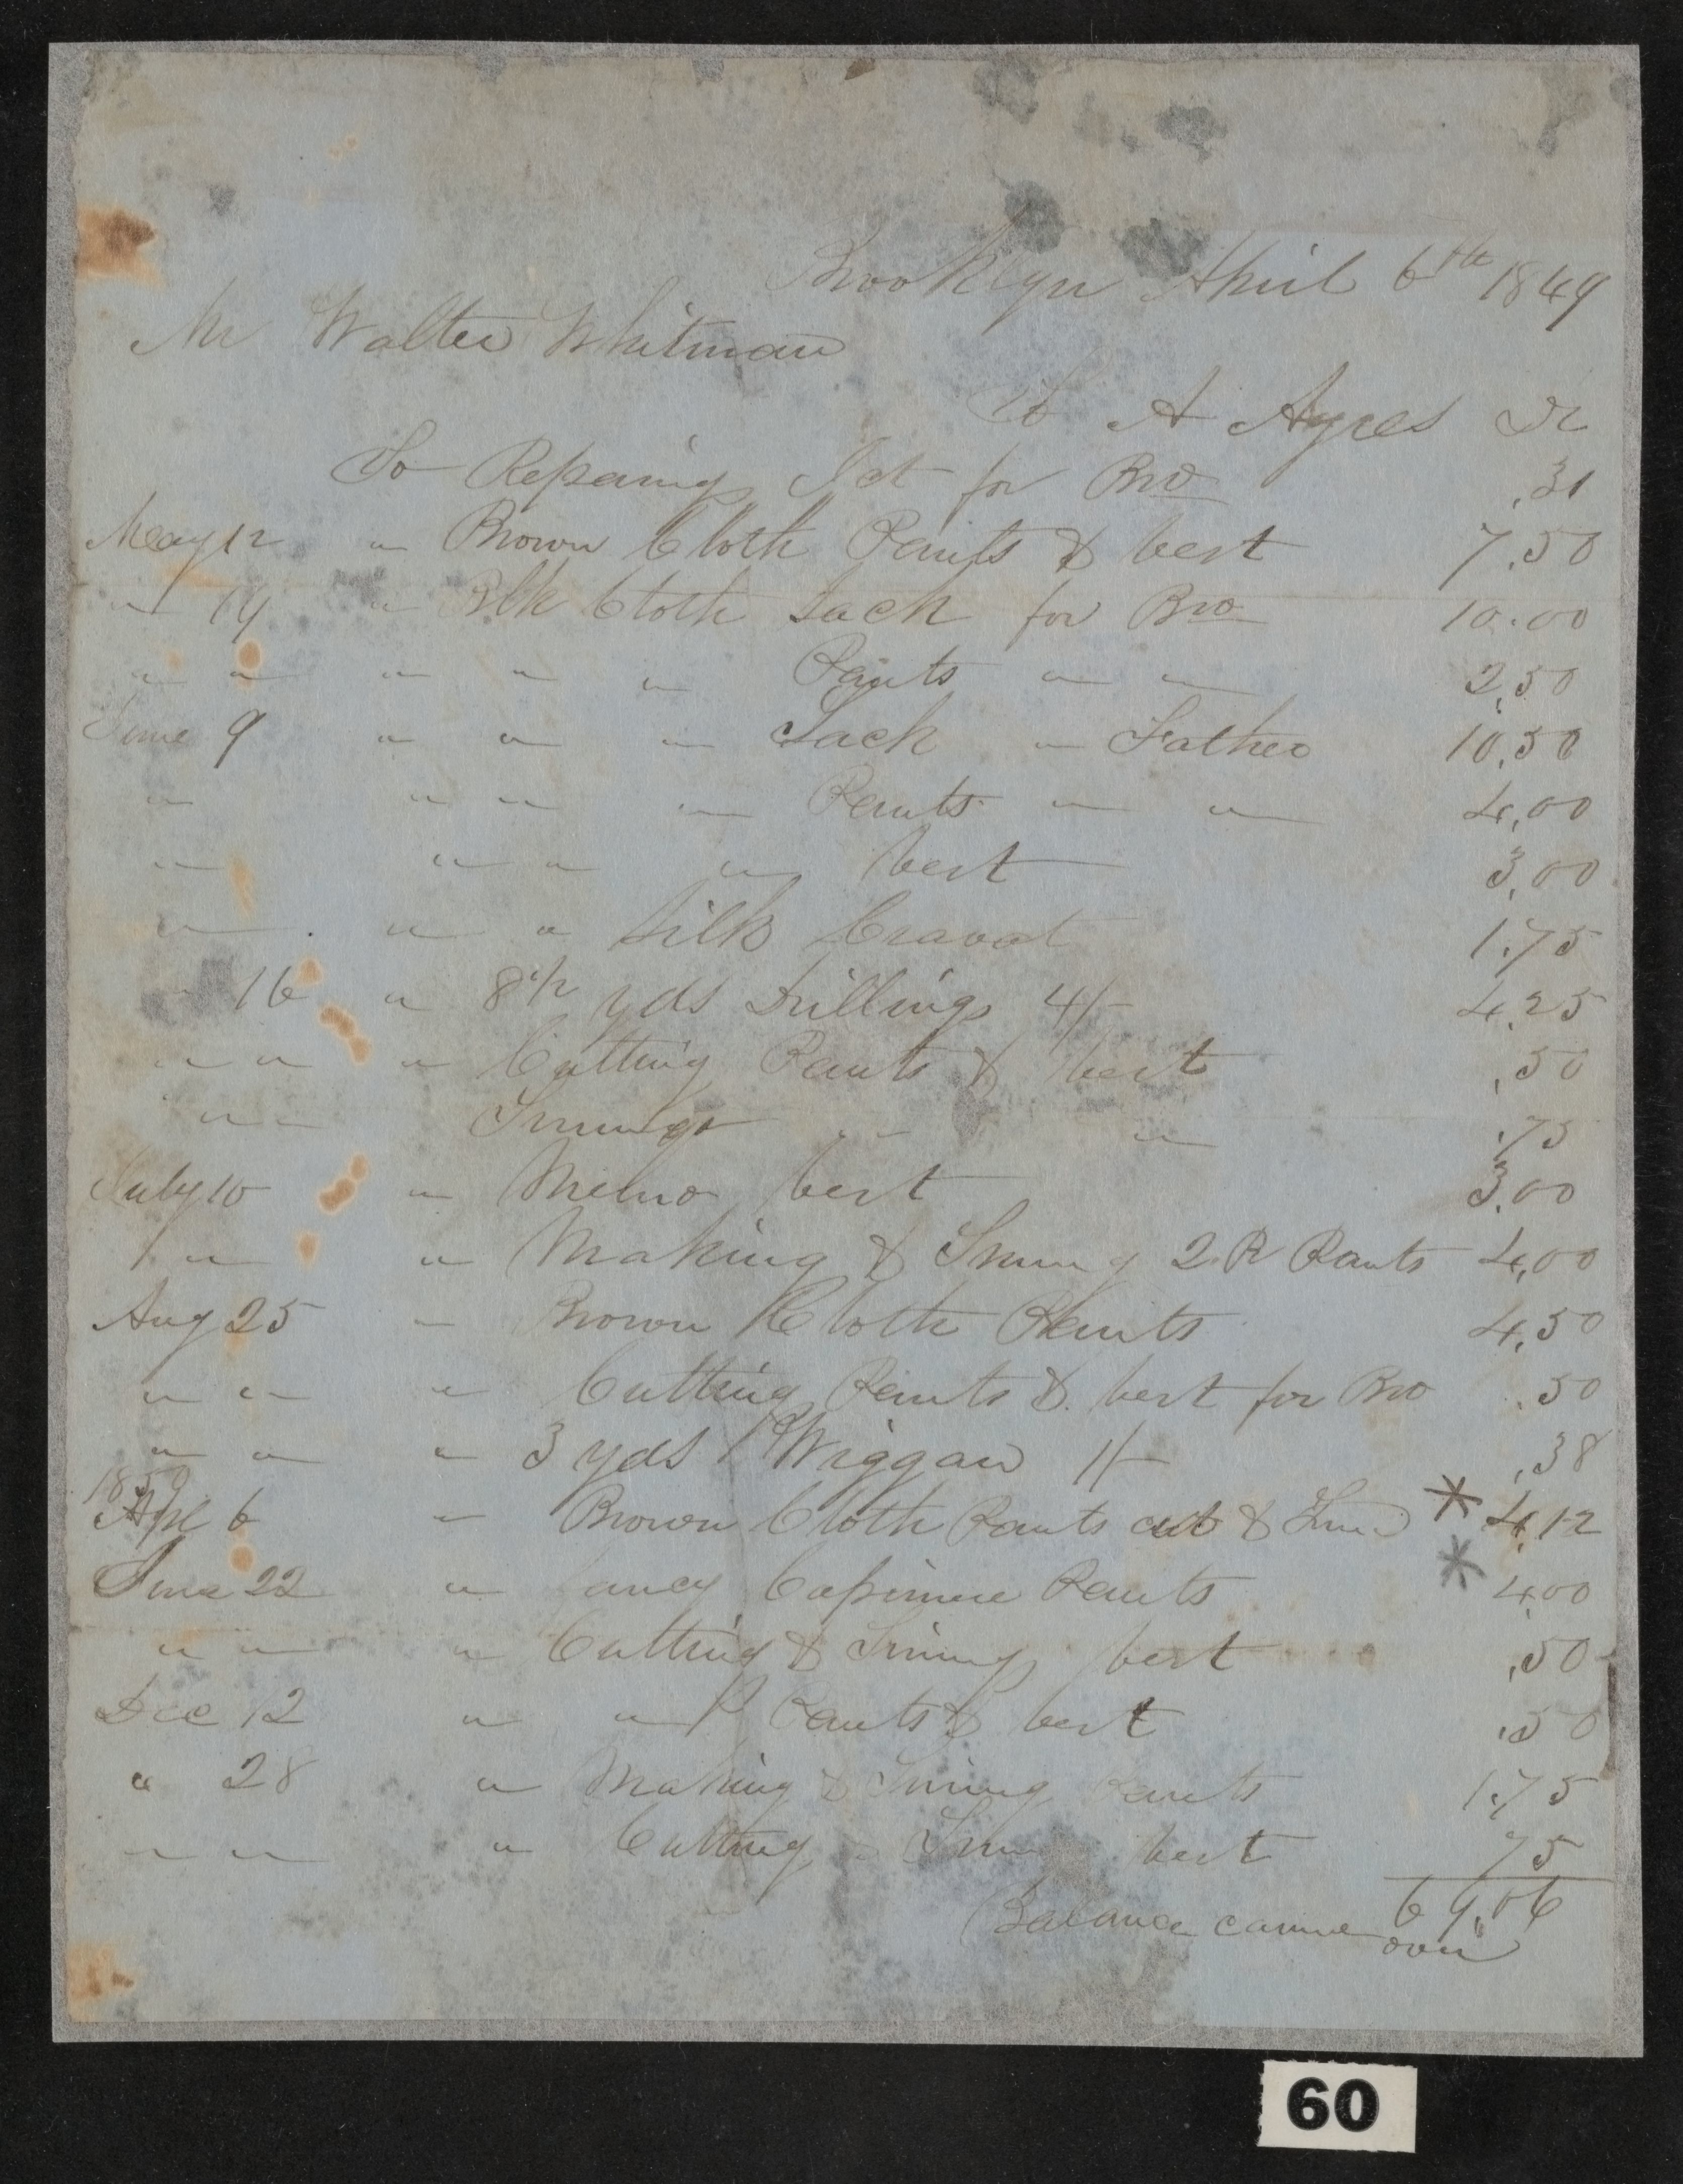 Brooklyn April 6th 1849
Mr Walter Whitman
To A Ayres Dr
To Repairing for Bro ,31
May 12 " Brown Cloth Pants & Vest 7.50
" 19 " Blk Cloth Sack for Bro 10.00
" " " " " Pants " " 2,50
June 9 " " " Sack " Father 10,50
" " " " Pants " " 4,00
" " " " Vest 3,00
" " " Silk Cravat 1.75
" 16 " 8 1/2 yds Drillings 4/- 4.25
" " " Cutting Pants & Vest ,50
" " Trimings " " .75
July 10 " Vest 3.00
" " Making & Triming 2 P Pants 4,00
Aug 25 " Brown Cloth Pants 4,50
" " " Cutting Pants & Vest for Bro .50
" " " 3 yds Wiggan 1/- ,38
1850
Apl 6 " Brown Cloth Pants cut & * 4,12
June 22 " Pants * 4.00
" " " Cutting & Triming Vest ,50
Dec 12 " " Pants & Vest .50
" 28 " Making & Triming Pants 1.75
" " " Cutting " Vest 75
69.06
Balance carried over
60